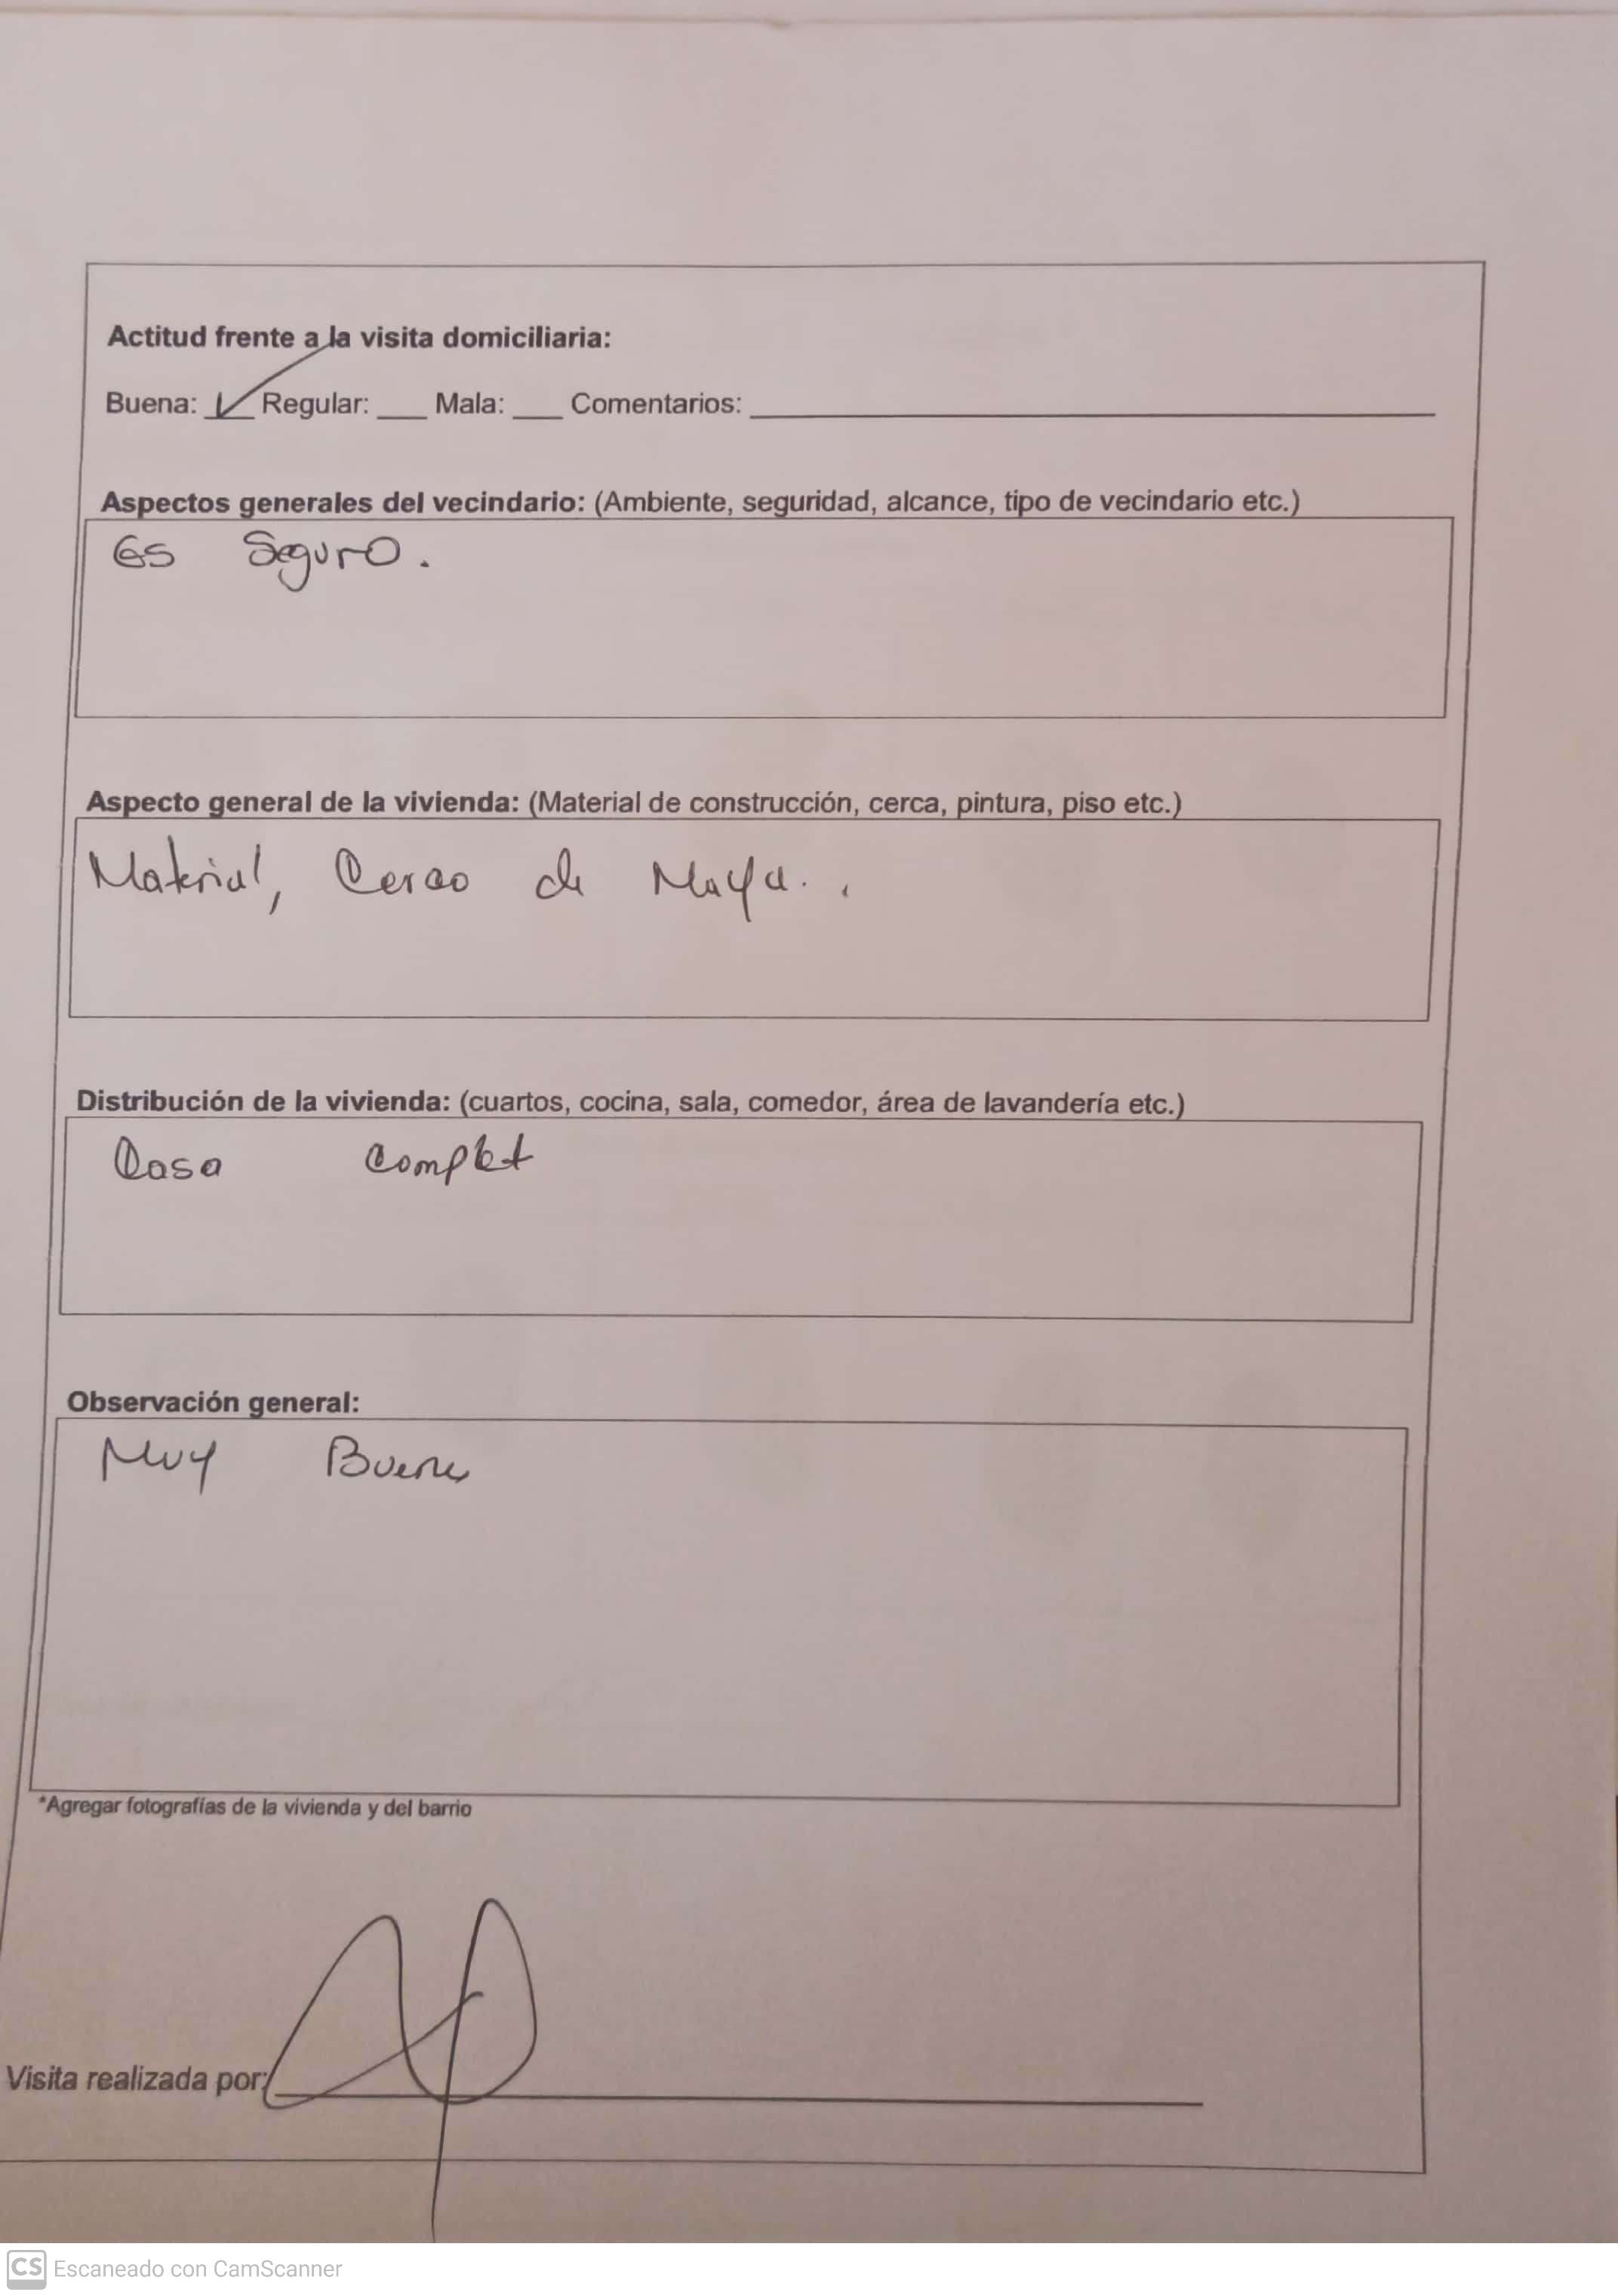 Actitud frente a la visita domiciliaria:
Buena: ✓ Regular: ___ Mala: ___ Comentarios: ___
Aspectos generales del vecindario: (Ambiente, seguridad, alcance, tipo de vecindario etc.)
Es Seguro.
Aspecto general de la vivienda: (Material de construcción, cerca, pintura, piso etc.)
Material, Cerco de Maya.
Distribución de la vivienda: (cuartos, cocina, sala, comedor, área de lavandería etc.)
Casa Complet
Observación general:
Muy Buena
*Agregar fotografías de la vivienda y del barrio
Visita realizada por:
CS Escaneado con CamScanner